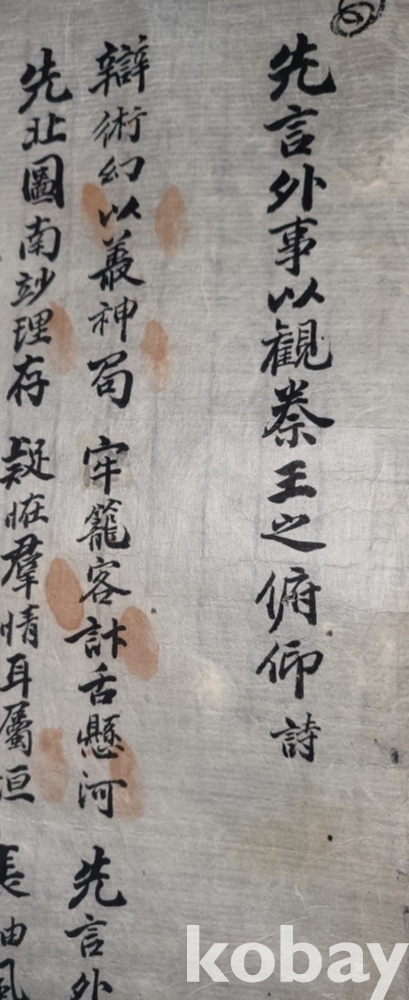 先言外事以觀秦王之俯仰詩
辯術幻以神 牢籠客計舌懸河 先言外
先北圖南竗理存 疑羣情耳屬垣 長袖風
kobay